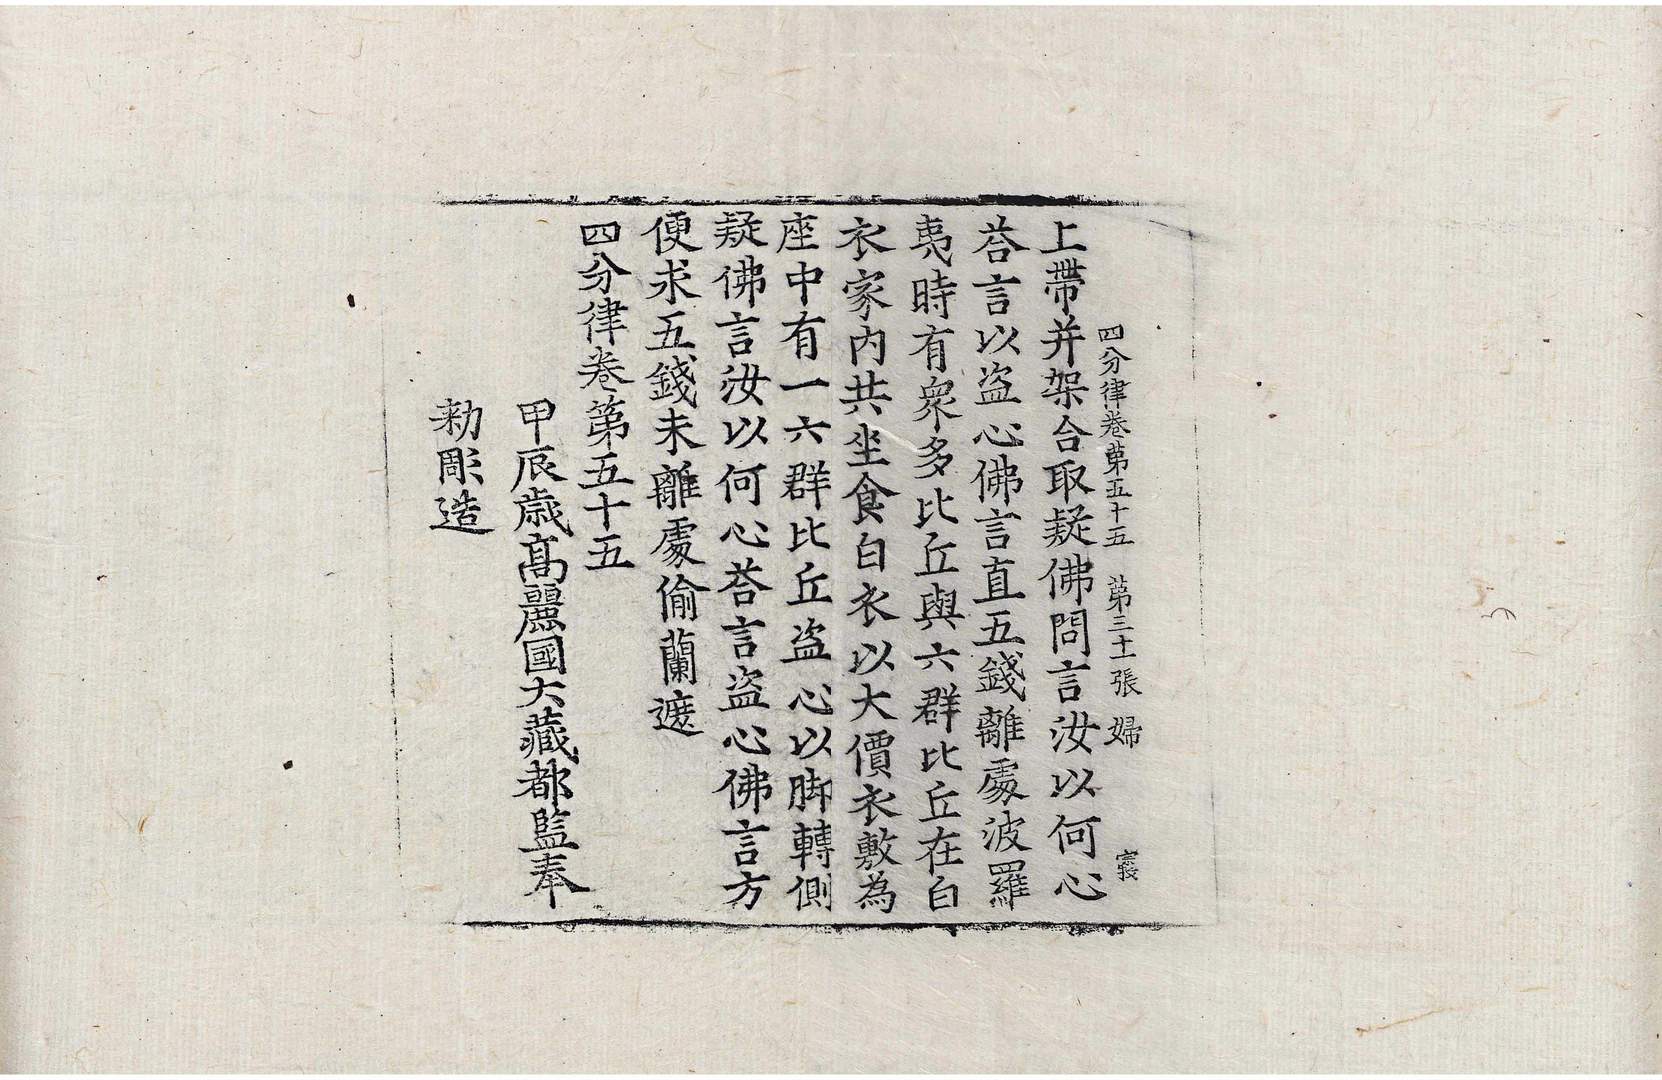 四分律卷第五十五 第三十一張 婦
上帶并架合取疑佛問言汝以何心
荅言以盜心佛言直五錢離處波羅
夷時有衆多比丘與六群比丘在白
衣家內共坐食白衣以大價衣敷為
座中有一六群比丘盜心以脚轉側
疑佛言汝以何心荅言盜心佛言方
便求五錢未離處偷蘭遮
四分律卷第五十五
甲辰歲高麗國大藏都監奉
勑彫造